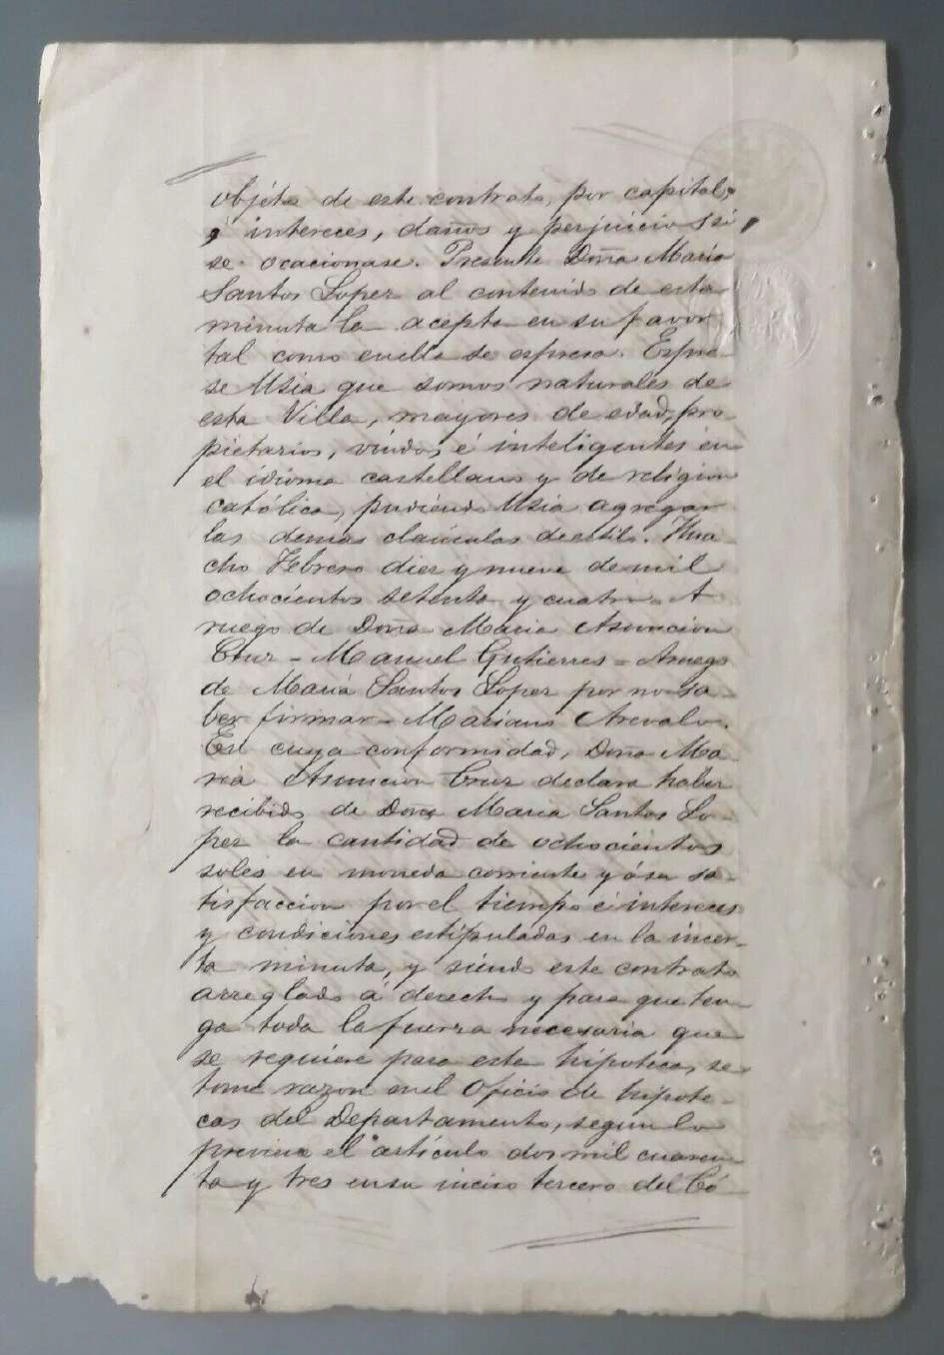 objéto de este contrato, por capital,
é intereces, daños y perjuicio si
se ocacionase. Presente Doña Maria
Santos Lopez al contenido de esta
minuta la acepta en su favor
tal como en ella se espresa. Espre-
se Usia que somos naturales de
esta Villa, mayores de edad, pro
pietarios, viudas, é inteligentes en
el idioma castellano y de religion
católica, pudiendo Usia agregar
las demas claúsulas de estilo. Hua-
cho Febrero diez y nueve de mil
ochocientos setenta y cuatro. A
ruego de Doña Maria Asuncion
Cruz = Manuel Gutierres = Aruego
de Maria Santos Lopez por no sa-
ber firmar = Mariano Arevalo.
En cuya conformidad, Doña Ma-
ria Asuncion Cruz declara haber
recibido de Doña Maria Santos Lo-
pez la cantidad de ochocientos
soles en moneda corriente y ásu sa-
tisfaccion por el tiempo é intereces
y condiciones estipuladas en la incer-
ta minuta, y siendo este contrato
arreglado á derecho y para que ten-
ga toda la fuerza necesaria que
se requiere para esta hipoteca, se
tome razon en el Oficio de hipote-
cas del Departamento, segun lo
previene el artículo dos mil cuaren-
ta y tres en su inciso tercero del Có-